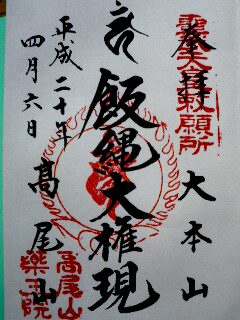 奉拝
大本山
飯縄大権現
平成二十年
四月六日
高尾山
霊天金剛祈願所
高尾山
楽王院